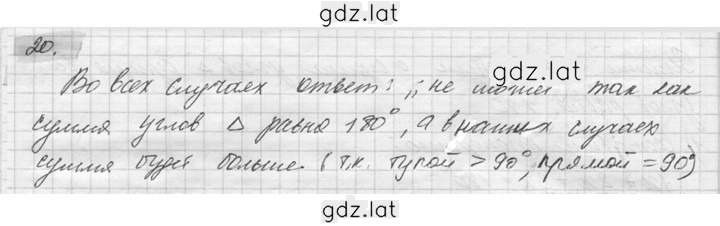 gdz.lat
20.
gdz.lat
Во всех случаех ответ: „не может так как
сумма углов Δ равна 180°, а в наших случаех
сумма будет больше. (т.к. тупой > 90°, прямой = 90°)
gdz.lat
gdz.lat